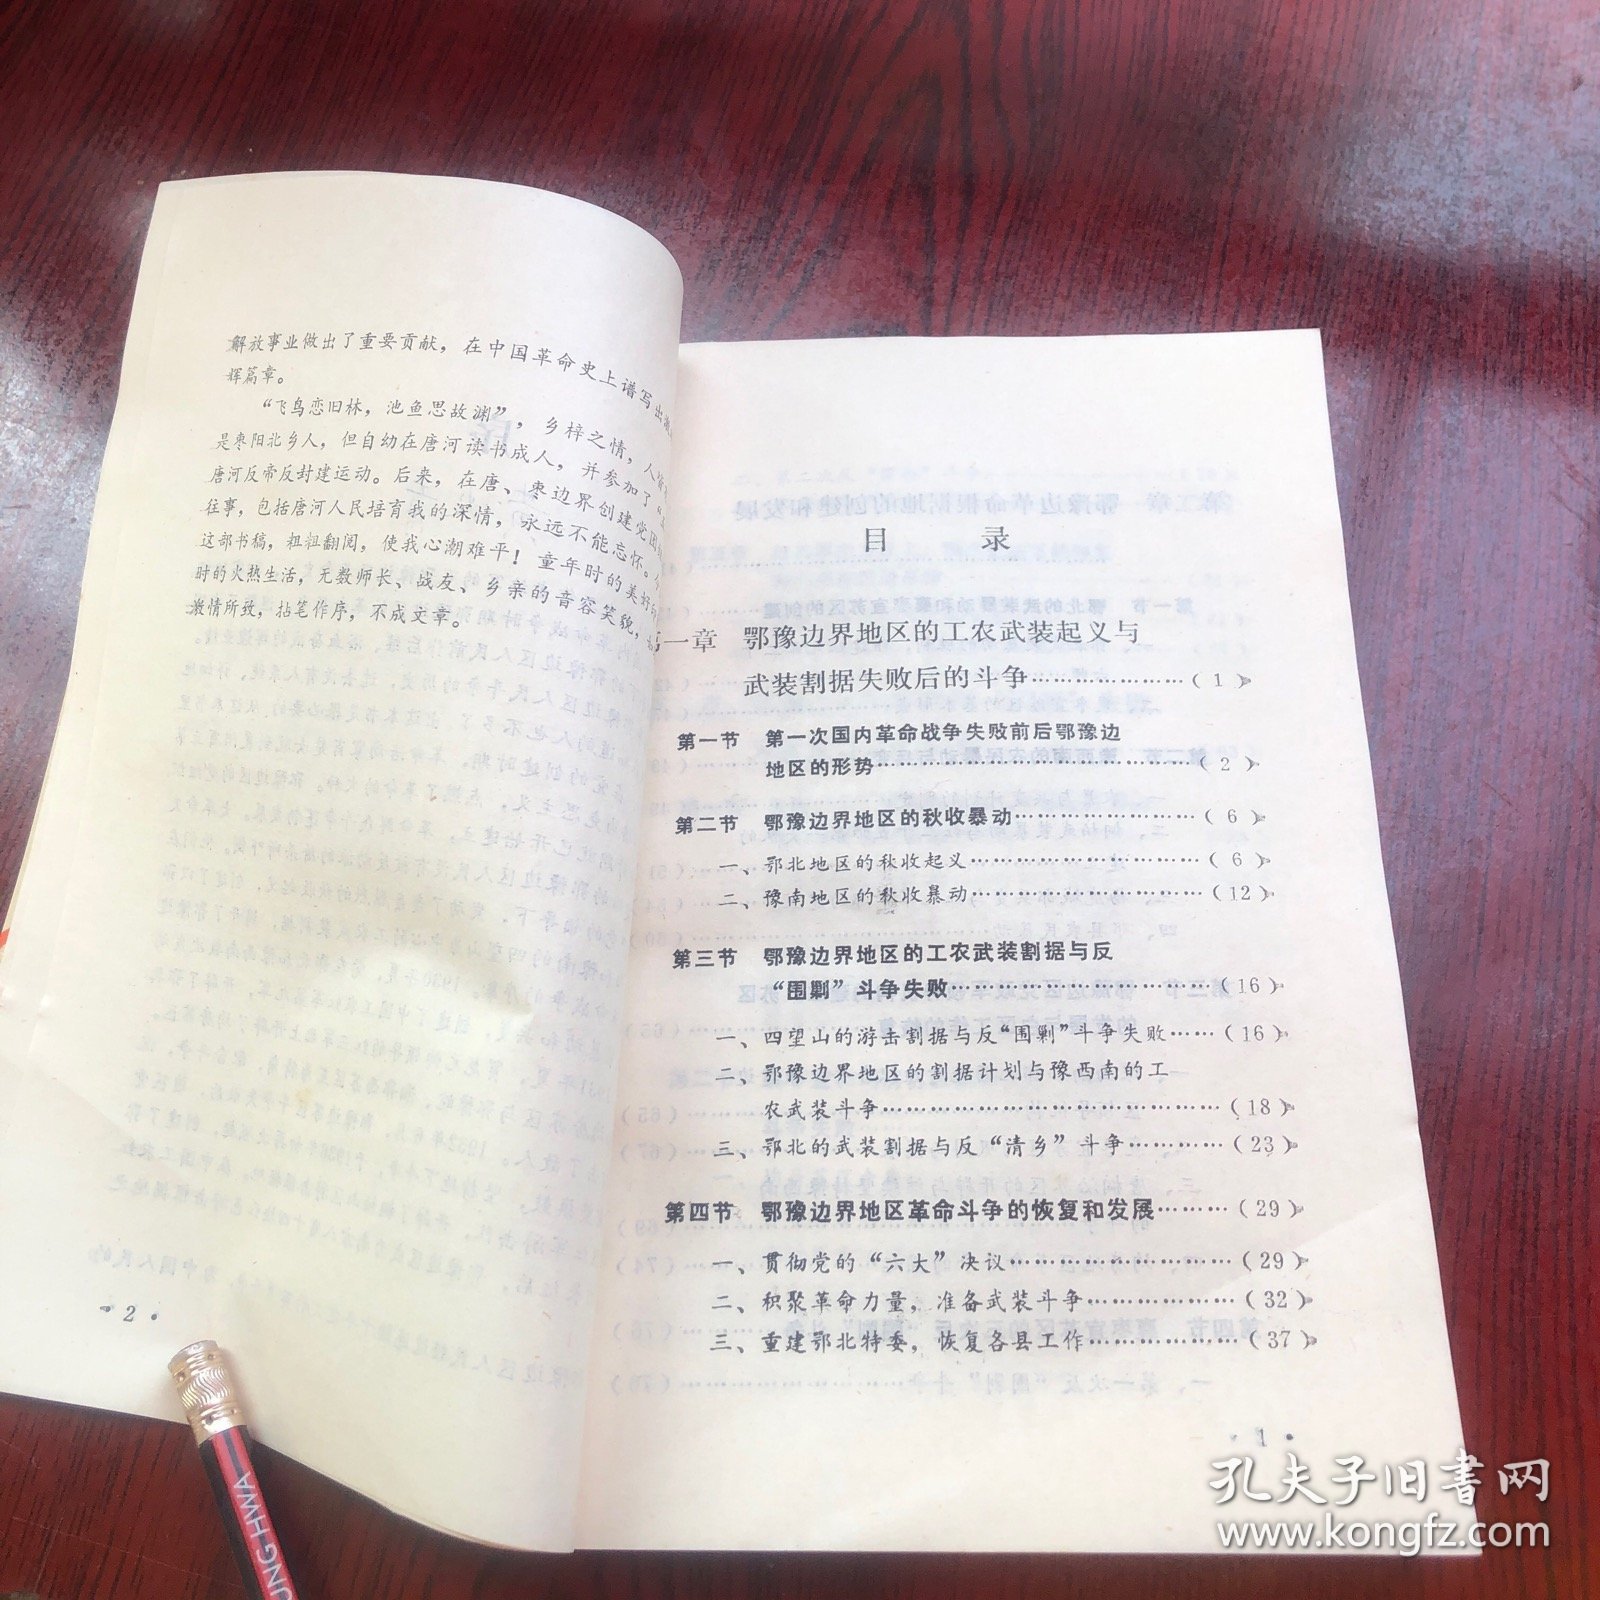 解放事业做出了重要贡献，在中国革命史上谱写出
辉篇章。
“飞鸟恋旧林，池鱼思故渊”，乡梓之情，人
是枣阳北乡人，但自幼在唐河读书成人，并参加了
唐河反帝反封建运动。后来，在唐、枣边界创建党团
往事，包括唐河人民培育我的深情，永远不能忘怀。
这部书稿，粗粗翻阅，使我心潮难平！童年时的美好
时的火热生活，无数师长、战友、乡亲的音容笑貌，
激情所致，拈笔作序，不成文章。
2 •
目 录
一章 鄂豫边界地区的工农武装起义与
武装割据失败后的斗争………………（1）
第一节 第一次国内革命战争失败前后鄂豫边
地区的形势…………………………………（2）
第二节 鄂豫边界地区的秋收暴动…………………………（6）
一、鄂北地区的秋收起义…………………………（6）
二、豫南地区的秋收暴动…………………………（12）
第三节 鄂豫边界地区的工农武装割据与反
“围剿”斗争失败…………………………（16）
一、四望山的游击割据与反“围剿”斗争失败……（16）
二、鄂豫边界地区的割据计划与豫西南的工
农武装斗争……………………………………（18）
三、鄂北的武装割据与反“清乡”斗争…………（23）
第四节 鄂豫边界地区革命斗争的恢复和发展………（29）
一、贯彻党的“六大”决议………………………（29）
二、积聚革命力量，准备武装斗争………………（32）
三、重建鄂北特委，恢复各县工作………………（37）
1 •
UNG HWA
孔夫子旧书网
www.kongfz.com